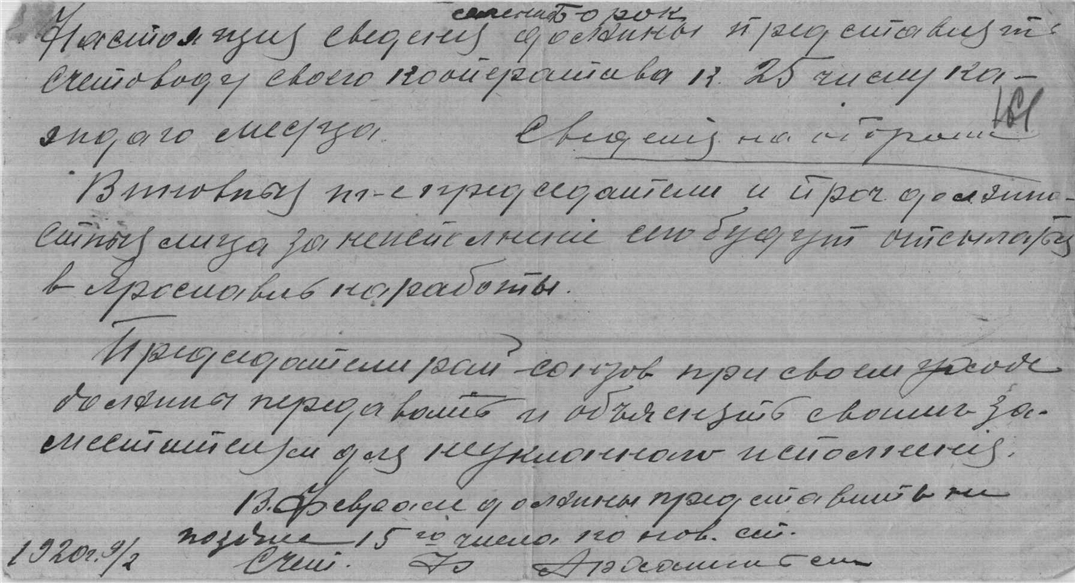 селений Борок
Настоящия сведения должны представлять
счетоводу своего кооператива к 25 числу ка-
ждаго месяца. Сведения на обороте
Виновныя председатели и проч должно-
стныя лица за неисполнение сего будут отсылаться
в Ярославль на работы.
Председатели рай-союзов при своем уходе
должны передавать и объяснять своим за-
местителям для неуклоннаго исполнения.
В Феврале должны представить не
позднее 15го числа по нов. ст.
1920 г. 9/2 Счет.